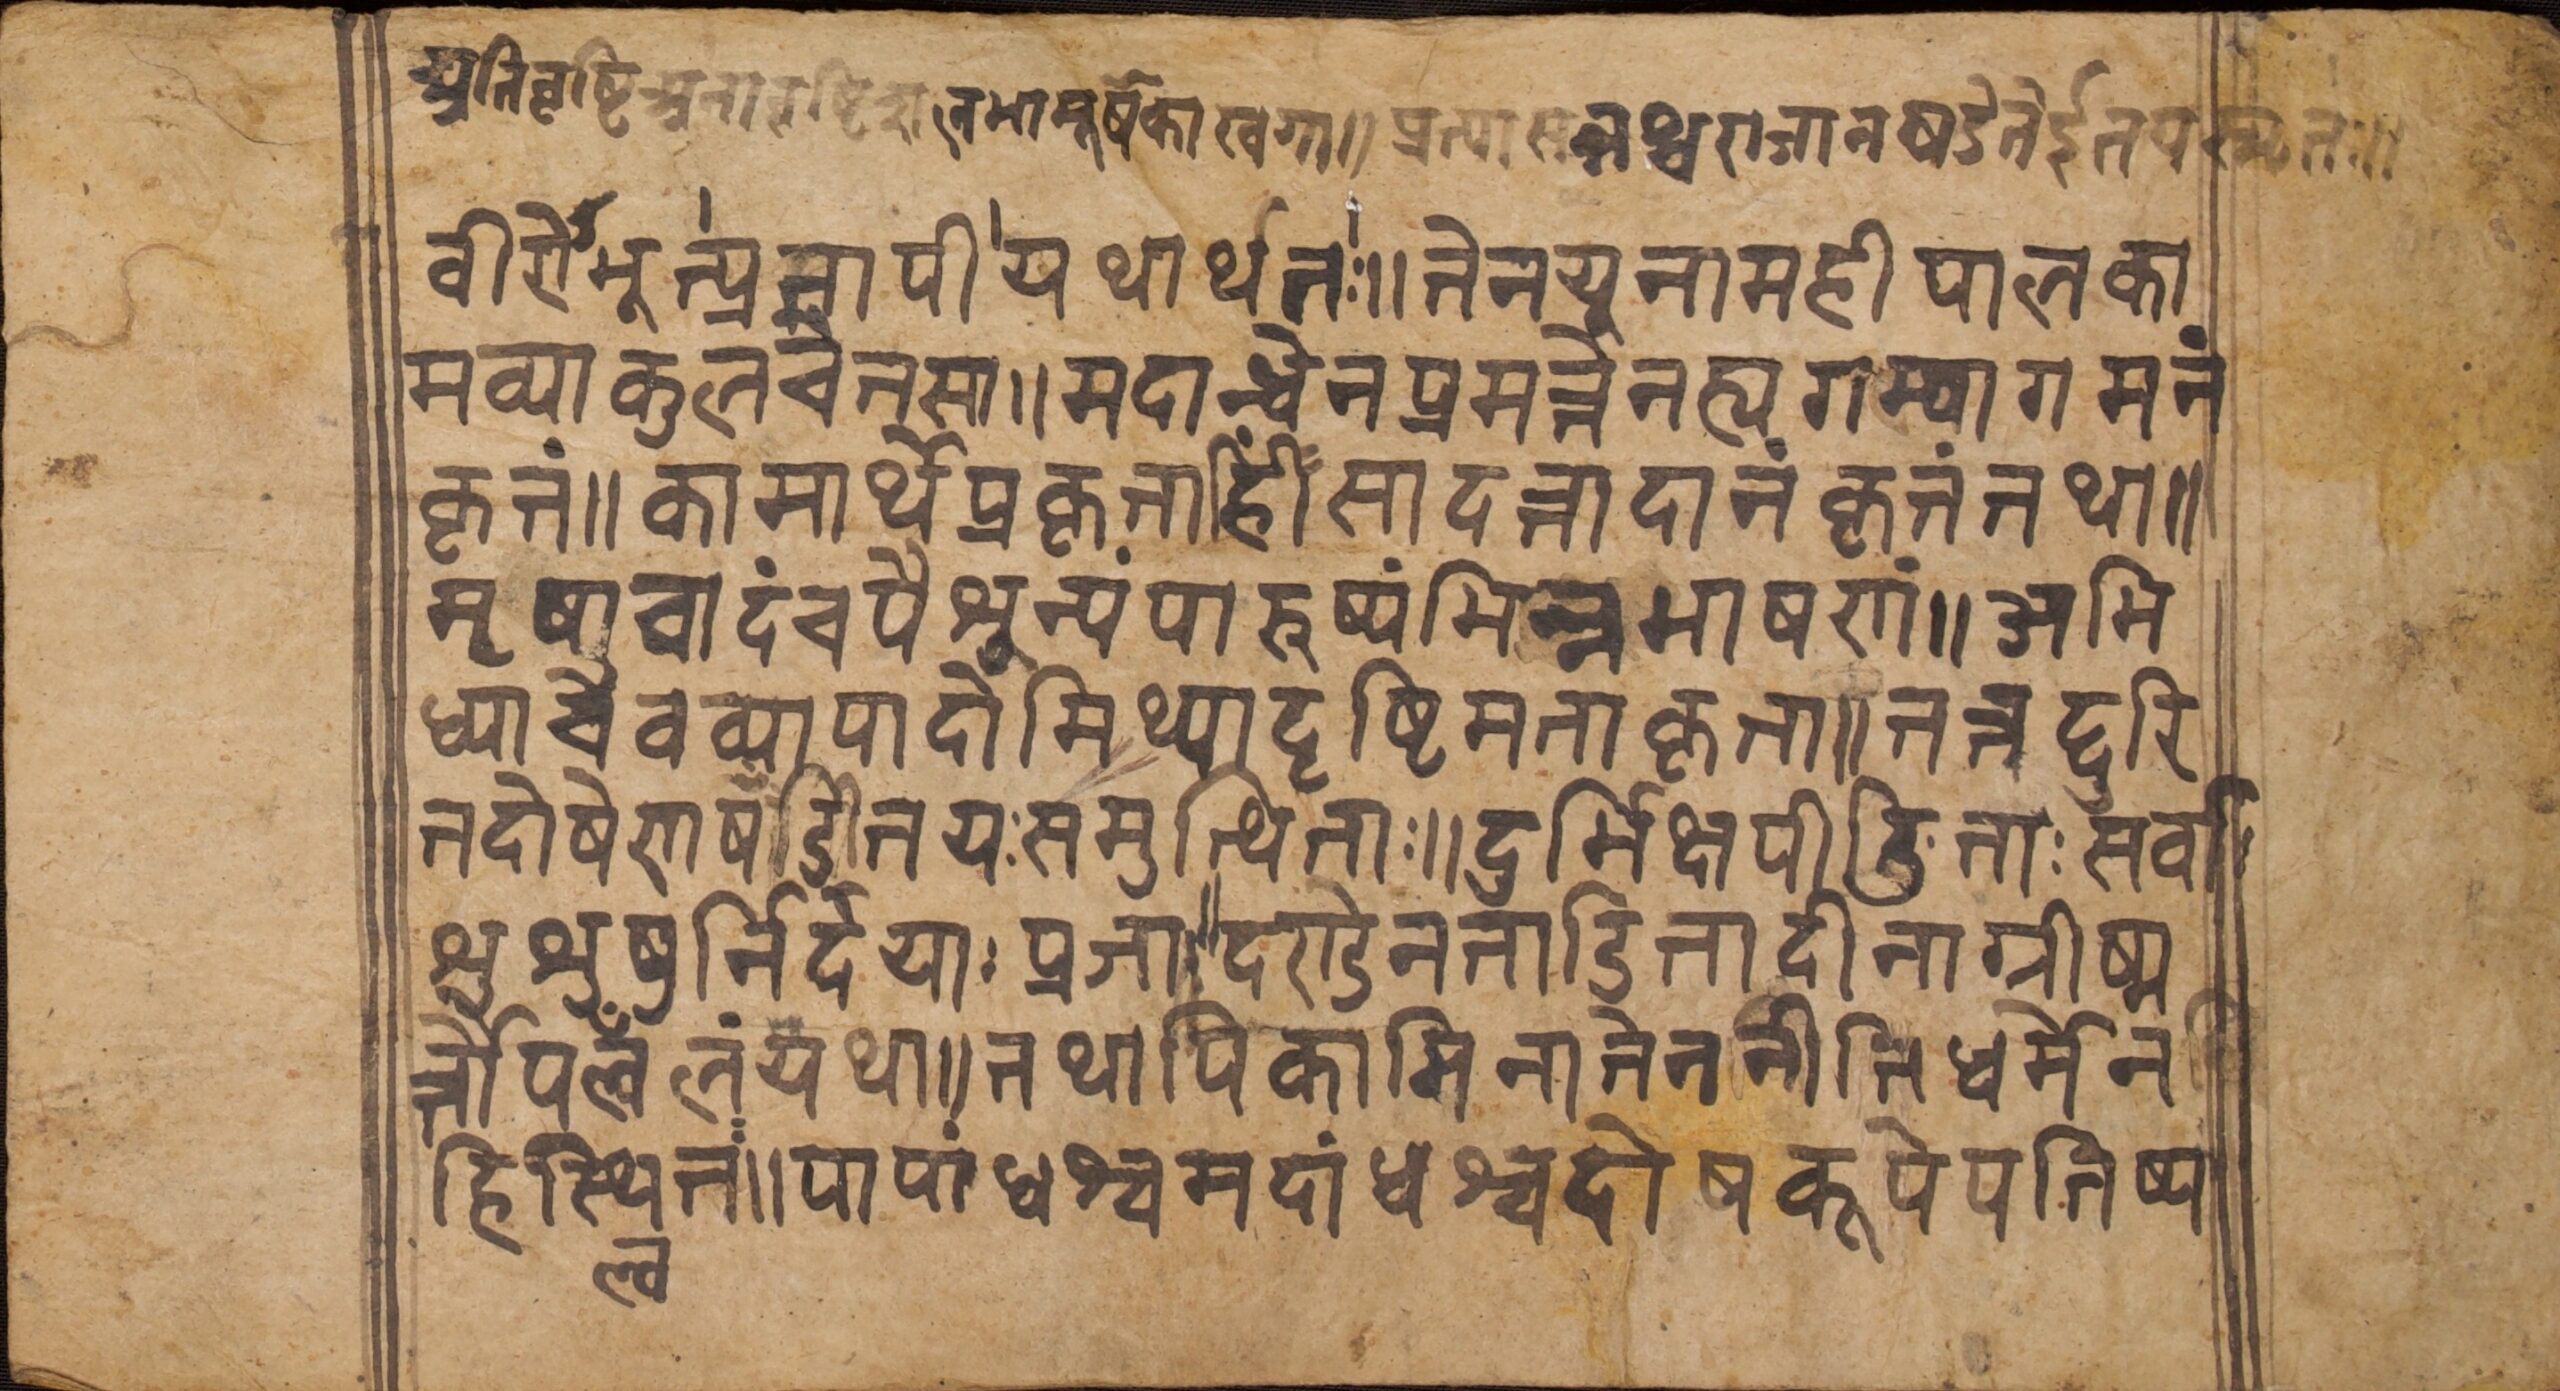 अतिवृष्टि अनावृष्टि शलभा मूर्षका खगा॥ प्रत्यासन्नश्च राजान षडेते ईतय स्मृतः॥
वीरो भून्प्रतापी यथार्थतः॥ तेन यूना महीपाल का
मव्याकुलचेतसा॥ मदान्धेन प्रमत्तेन ह्यगम्यागमनं
कृतं॥ कामार्थे प्रकृता हिंसादत्तादानं कृतं तथा॥
मृषावादं च पैशून्यं पारुष्यं भिन्नभाषणं॥ अभि
ध्या चैव व्यापादो मिथ्यादृष्टि मताकृता॥ तत्र दुरि
तदोषेण षडीतयः समुत्थिताः॥ दुर्भिक्षपीडिताः सर्वाः
शुश्रुषु र्निर्दयाः प्रजाः॥ दण्डेन ताडिता दीना ग्रीष्म
र्तौ पल्वलं यथा॥ तथापि कामिना तेन नीतिधर्मे न
हि स्थितं॥ पापांधश्च मदांधश्च दोषकूपे पतिष्य
ल्व